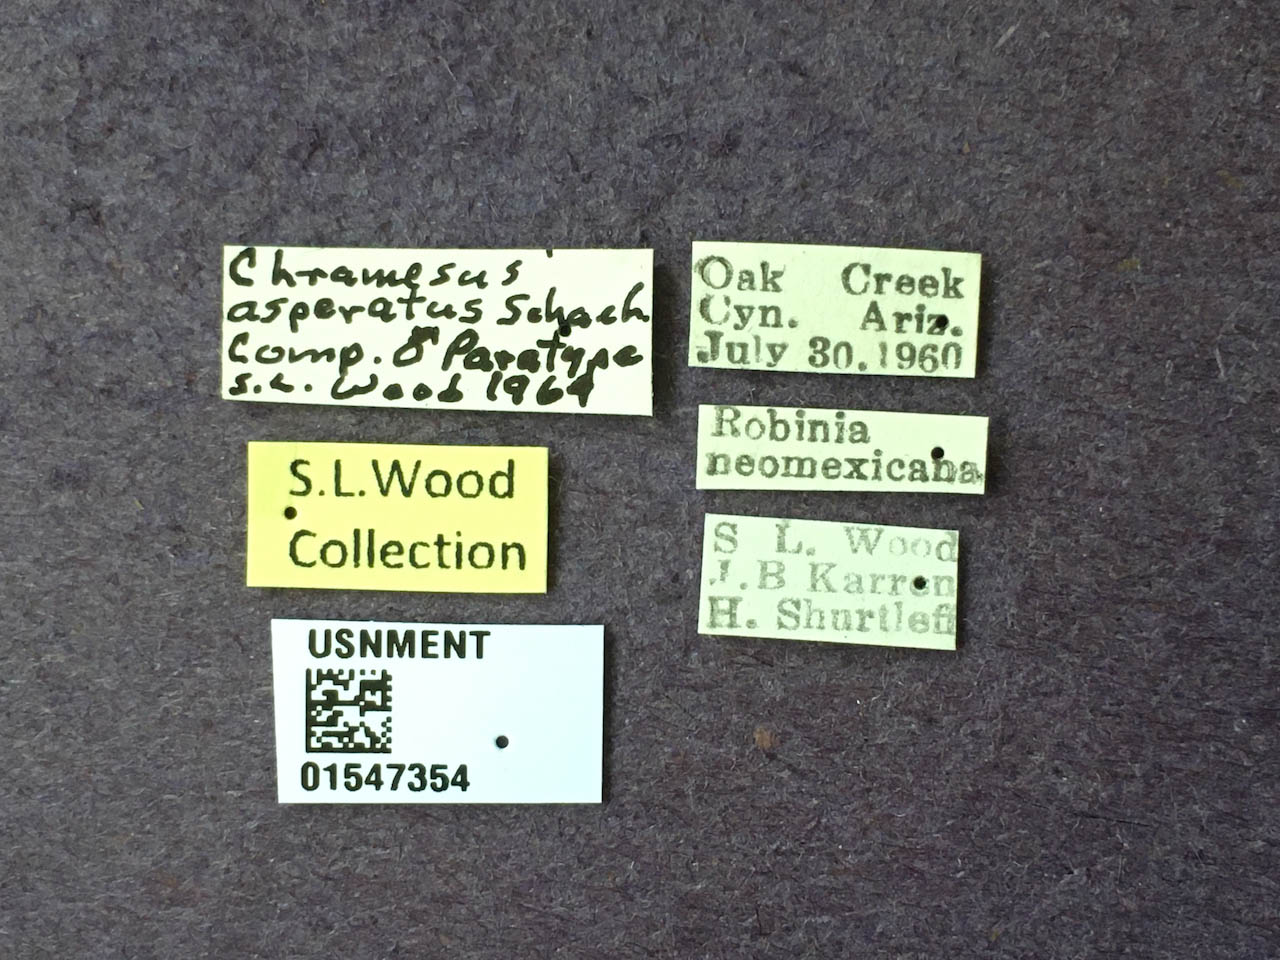 Chramesus
asperatus Schach
Comp. ♂ Paratype
S.L. Wood 1969
S.L.Wood
Collection
USNMENT
01547354
Oak Creek
Cyn. Ariz.
July 30.1960
Robinia
neomexicana
S L. Wood
J.B Karren
H. Shurtleff